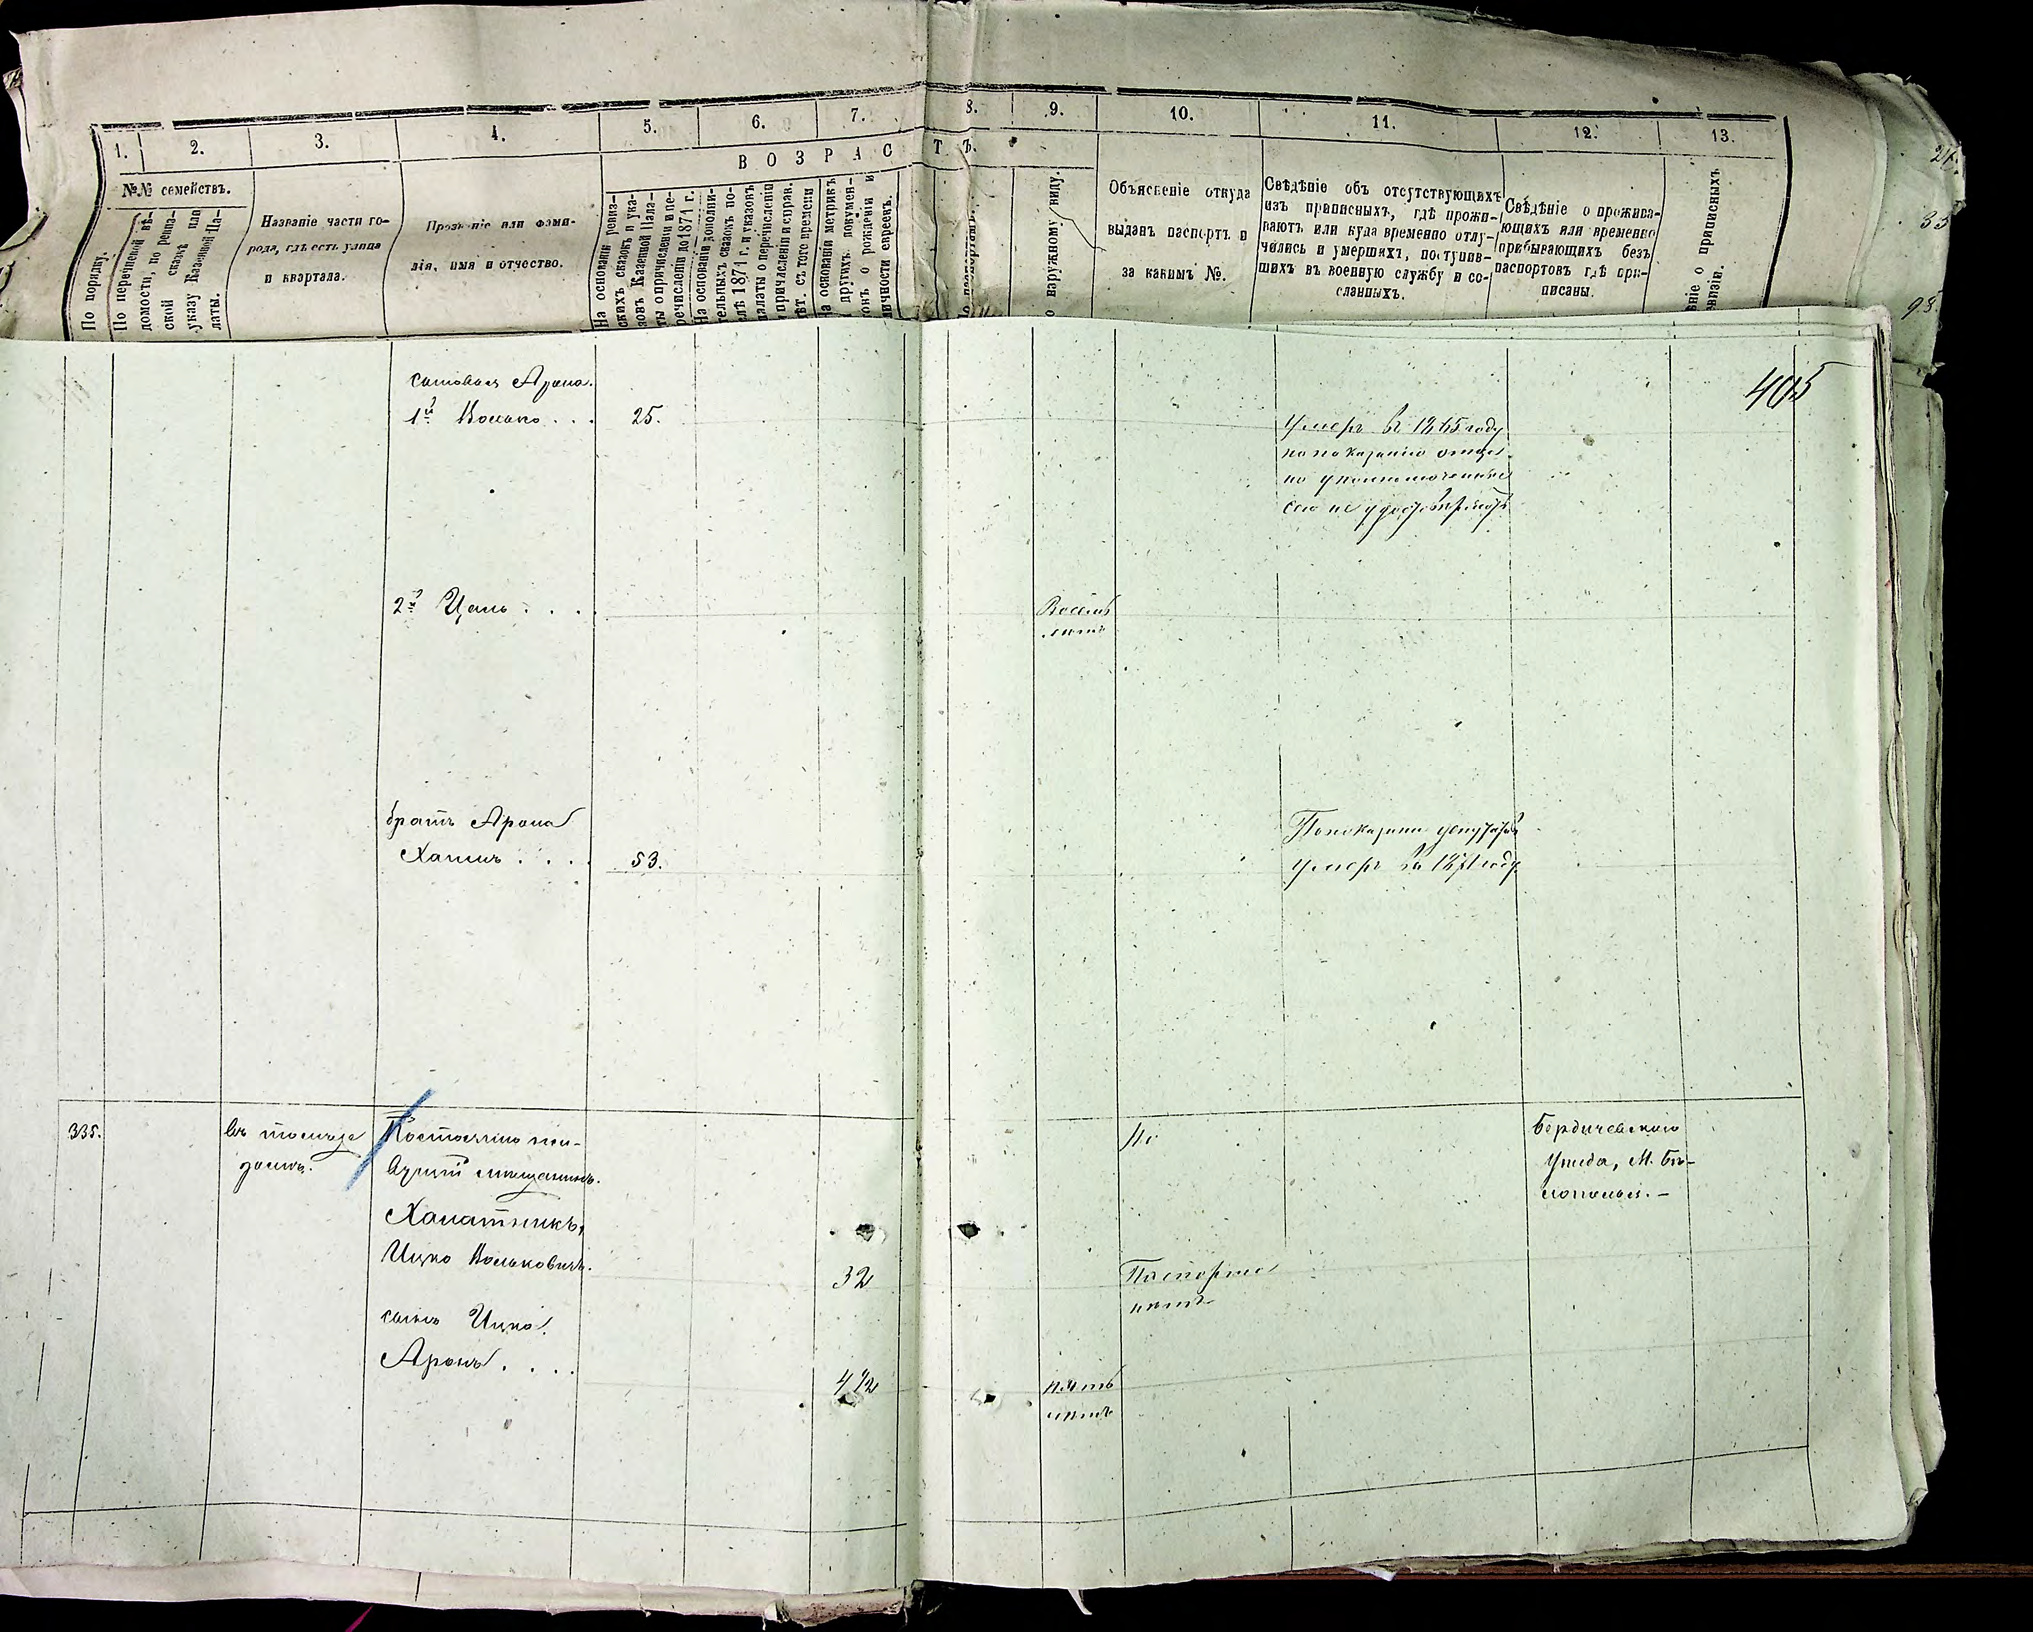 1.
2.
3.
4.
5.
6.
7.
8.
9.
10.
11.
12.
13.
№№ семействъ.
В О З Р А С Т Ъ.
По порядку.
По перечневой вѣ-
домости, по ревиз-
ской сказкѣ или
указу Казенной Па-
латы.
Названіе части го-
рода, гдѣ есть улица
и квартала.
Прозваніе или фами-
лія, имя и отчество.
На основаніи ревиз-
скихъ сказокъ и ука-
зовъ Казенной Пала-
ты о причисленіи и пе-
речисленіи до 1874 г.
На основаніи дополни-
тельныхъ сказокъ по-
слѣ 1874 г. и указовъ
палаты о перечисленіи
и причисленіи и справ.
лѣт. съ того времени
на основаніи метрикъ
и другихъ докумен-
товъ о рожденіи и
личности евреевъ.
о паспортамъ.
о наружному виду.
Объясненіе откуда
выданъ паспортъ и
за какимъ №.
Свѣдѣніе объ отсутствующихъ
изъ приписныхъ, гдѣ прожи-
ваютъ или куда временно отлу-
чились и умершихъ, поступив-
шихъ въ военную службу и со-
сланныхъ.
Свѣдѣніе о прожива-
ющихъ или временно
прибывающихъ безъ
паспортовъ гдѣ при-
писаны.
ѣніе о приписныхъ
405
сыновья Арона.
1й Волько . . . 25.
Умеръ въ 1865 году
по показанію отца
но уполномоченные
сего не удостовѣряютъ
2й Цаль . . . .
Восемь
лѣтъ
братъ Арона
Хаимъ . . . . 53.
По показанію депутатовъ
умеръ въ 1871 году.
335.
въ тоемже
домѣ.
Постоянно жи-
вущій мѣщанинъ.
Халатникъ,
Ицко Вольковичъ. 32
Паспорта
нѣтъ
Бердичевскаго
Уѣзда, М. Бѣ-
лополья. –
сынъ Ицка
Аронъ . . . . 4 1/2
пять
лѣтъ